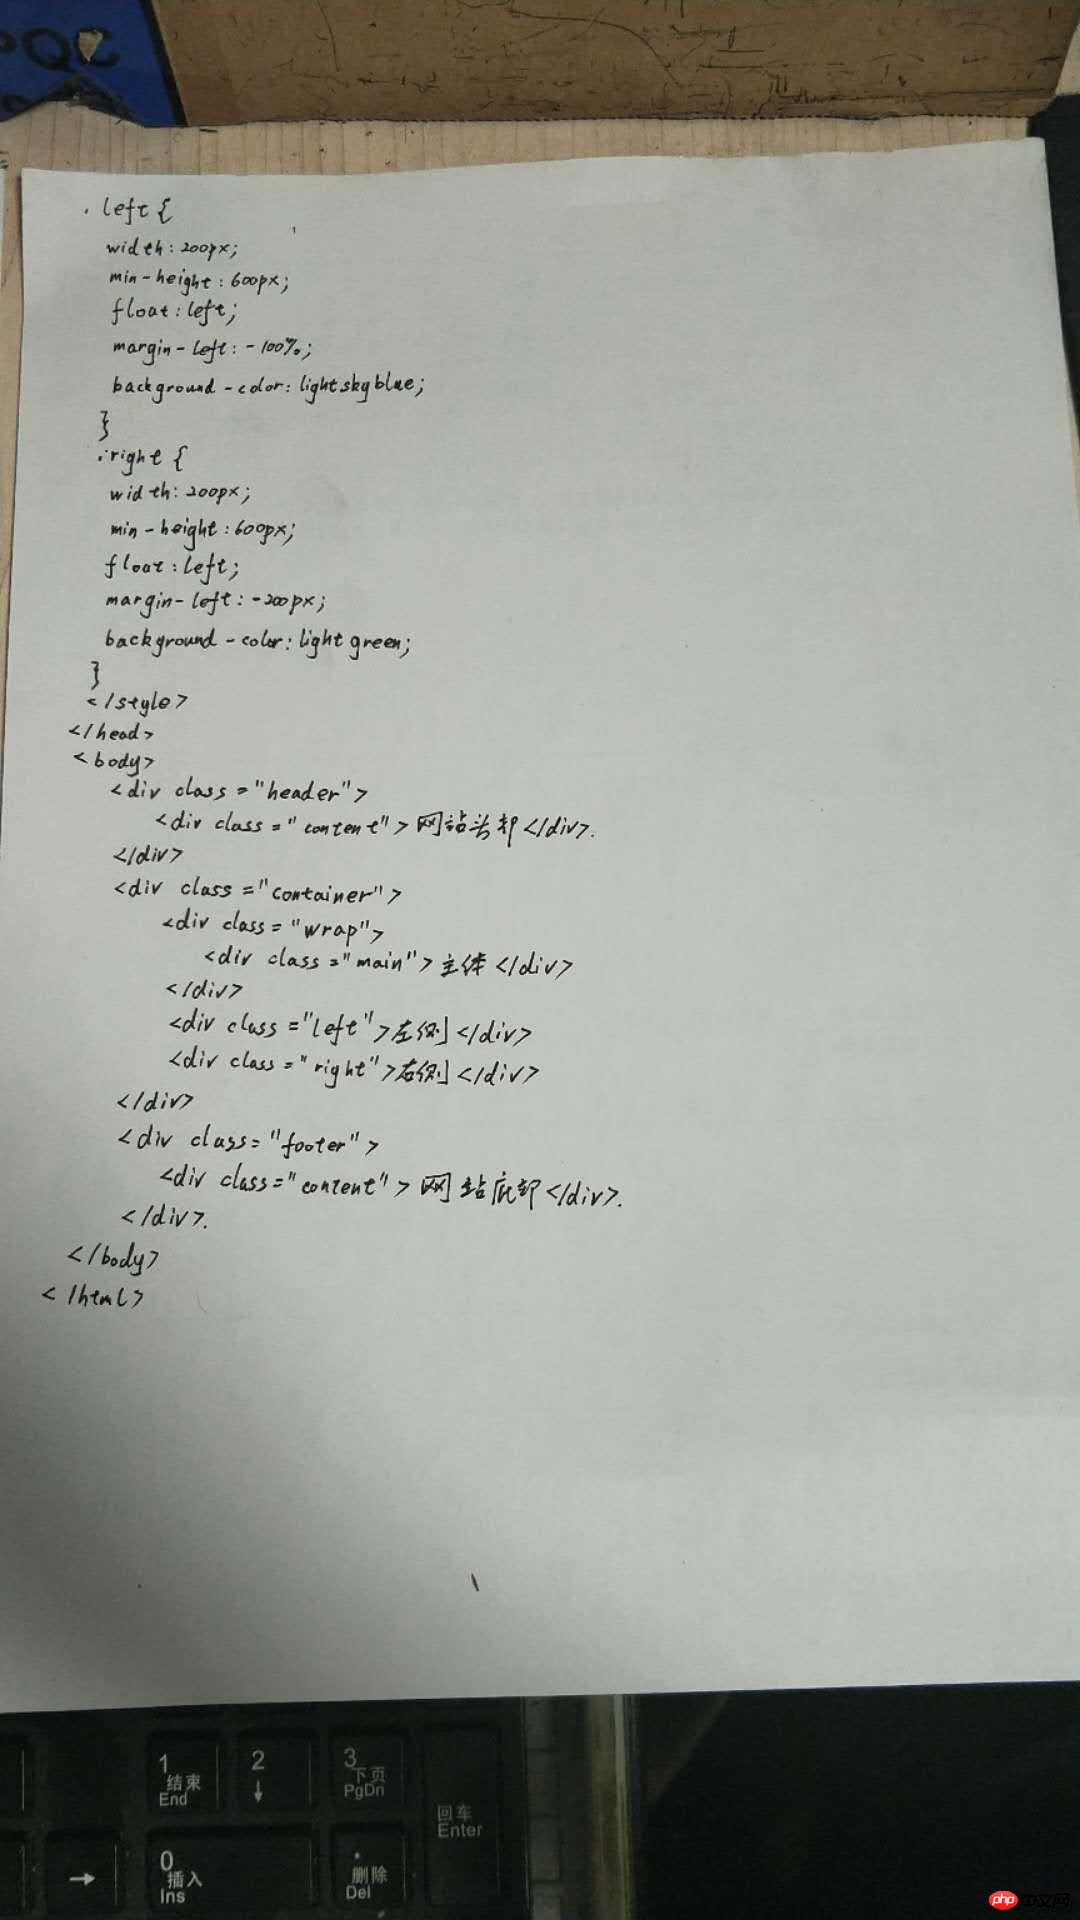 .left {
width: 200px;
min-height: 600px;
float: left;
margin-left: -100%;
background-color: lightskyblue;
}
.right {
width: 200px;
min-height: 600px;
float: left;
margin-left: -200px;
background-color: lightgreen;
}
</style>
</head>
<body>
<div class="header">
<div class="content">网站头部</div>.
</div>
<div class="container">
<div class="wrap">
<div class="main">主体</div>
</div>
<div class="left">左侧</div>
<div class="right">右侧</div>
</div>
<div class="footer">
<div class="content">网站底部</div>.
</div>.
</body>
</html>
1 结束 End
2 ↓
3 下页 PgDn
回车 Enter
→
0 插入 Ins
. 删除 Del
php中文网